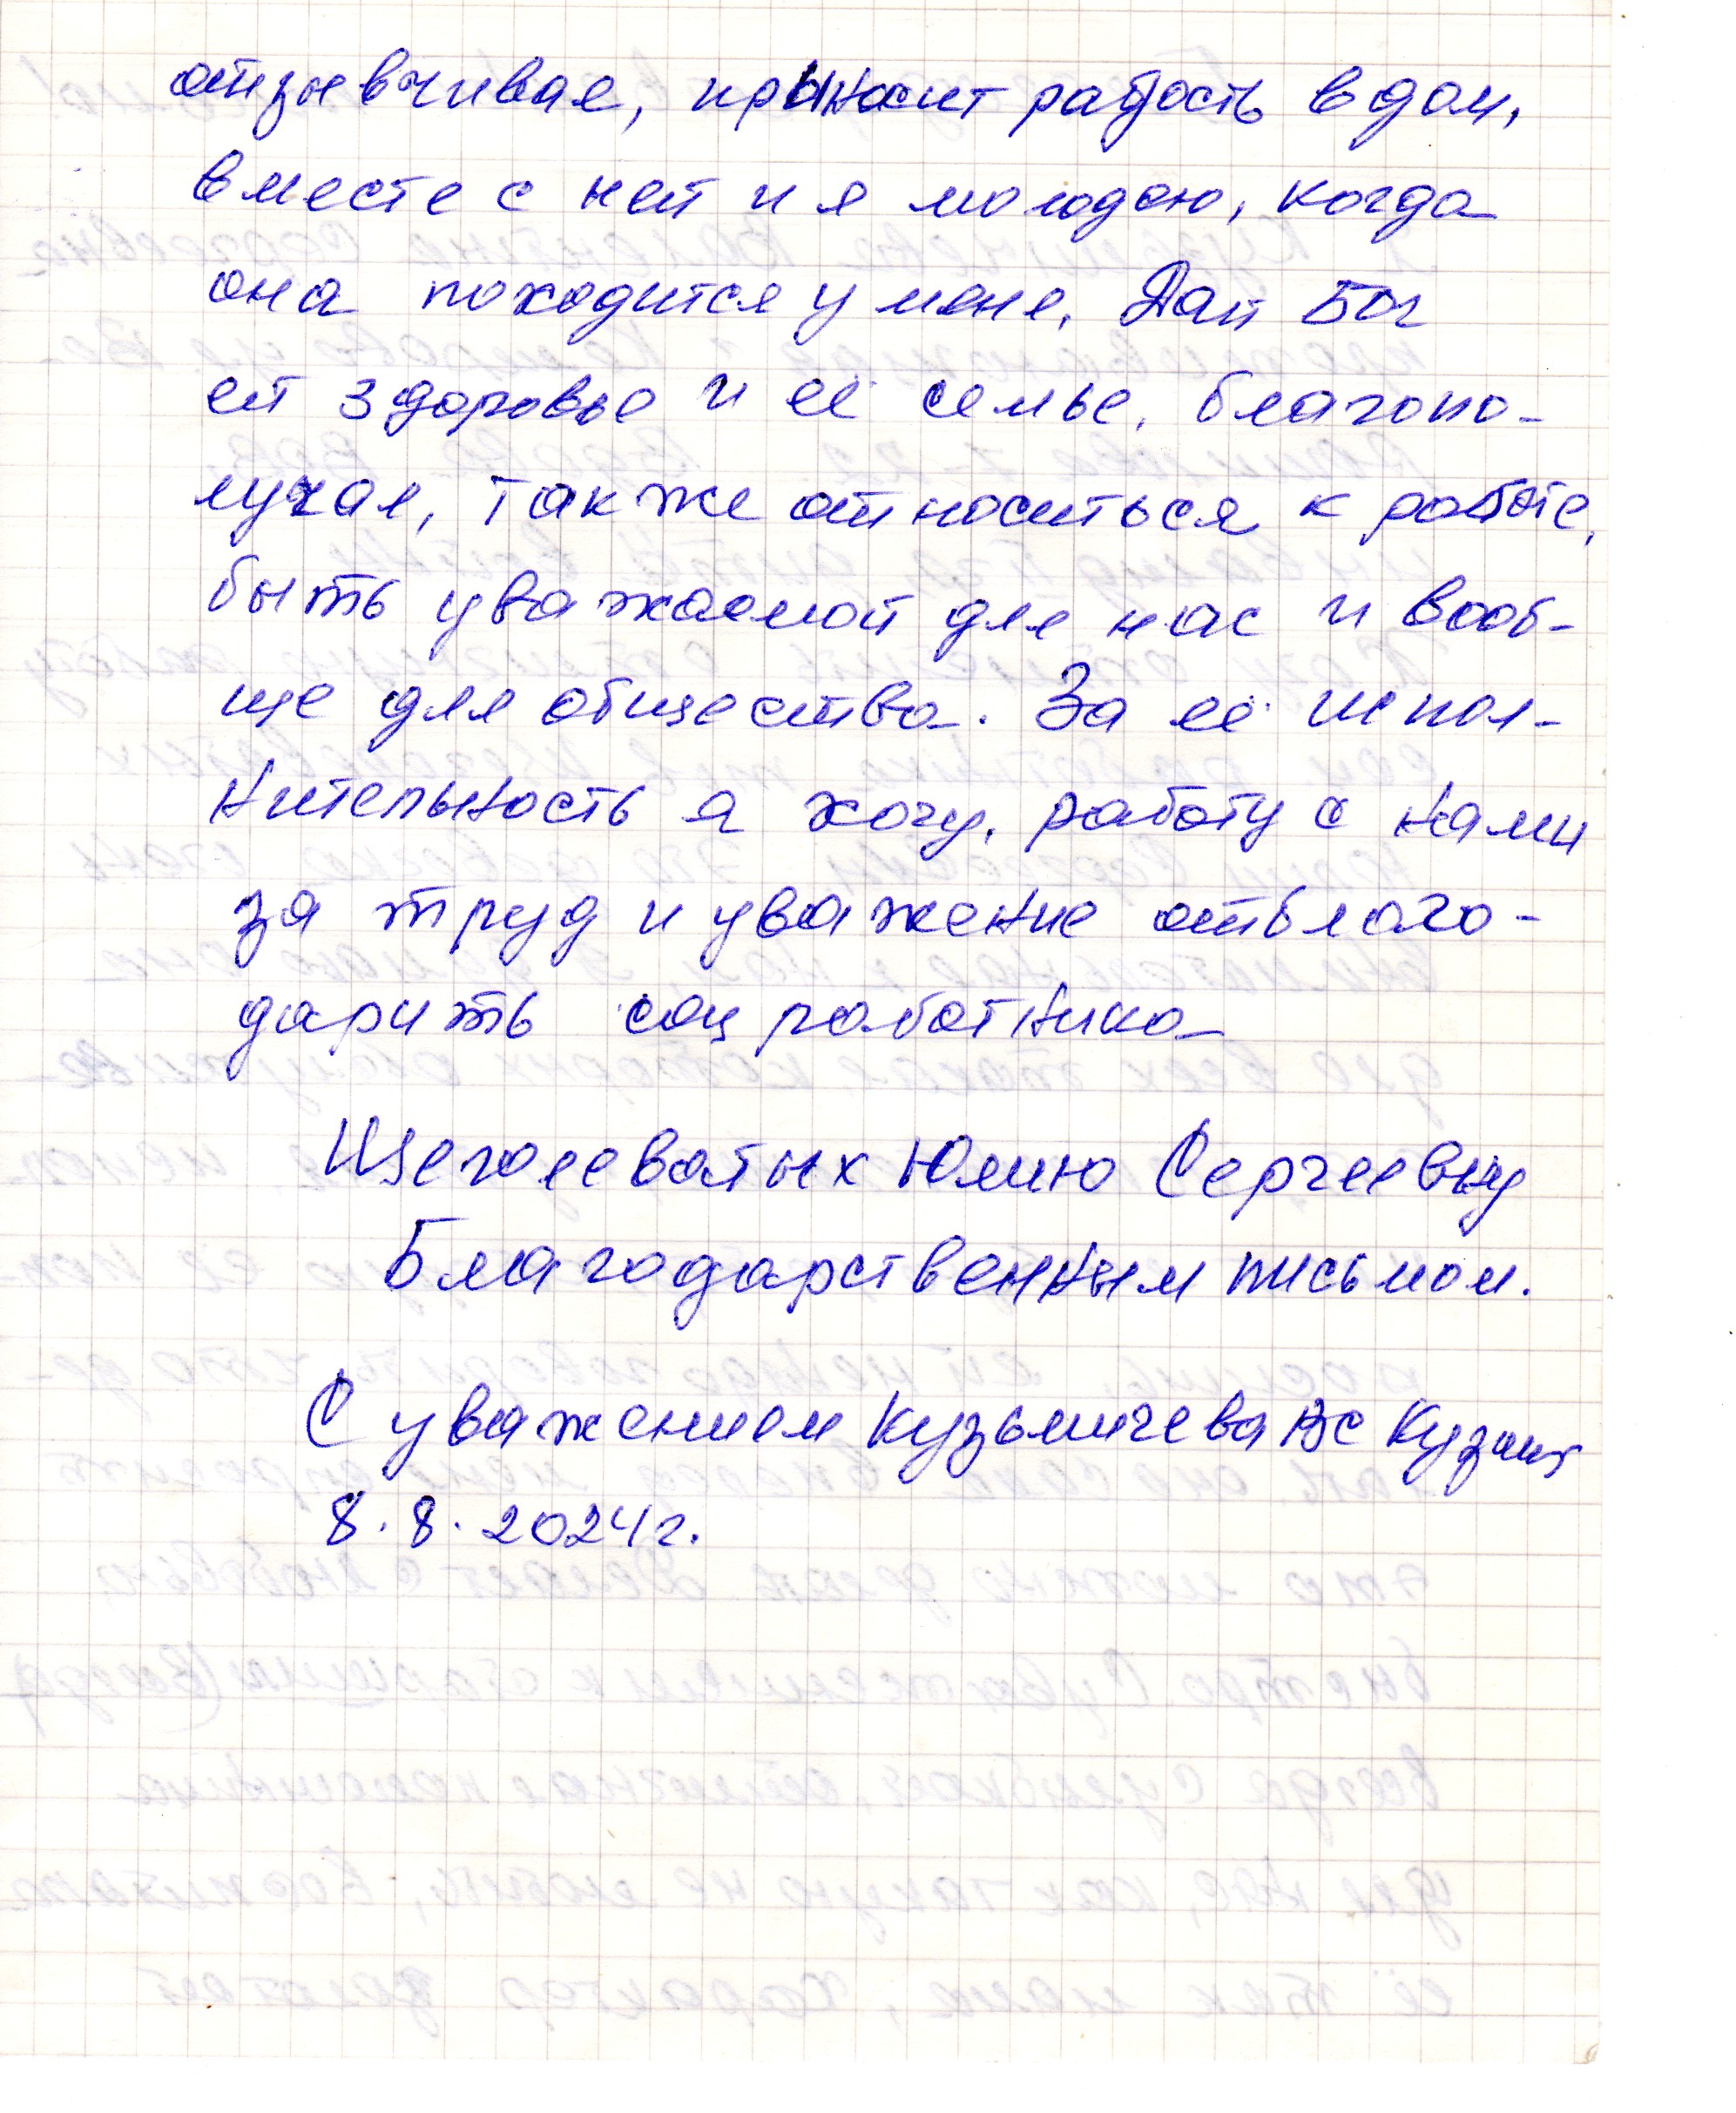 отзывчивая, приносит радость в дом,
вместе с ней и я молодею, когда
она находится у меня. Дай Бог
ей здоровье и её семье, благопо-
лучая, так же относиться к работе,
быть уважаемой для нас и вооб-
ще для общества. За её испол-
нительность я хочу, работу с нами
за труд и уважение отблаго-
дарить соц работника
Щеголеватых Юлию Сергеевну
Благодарственным письмом.
С уважением Кузьмичева ВС
8.8.2024г.